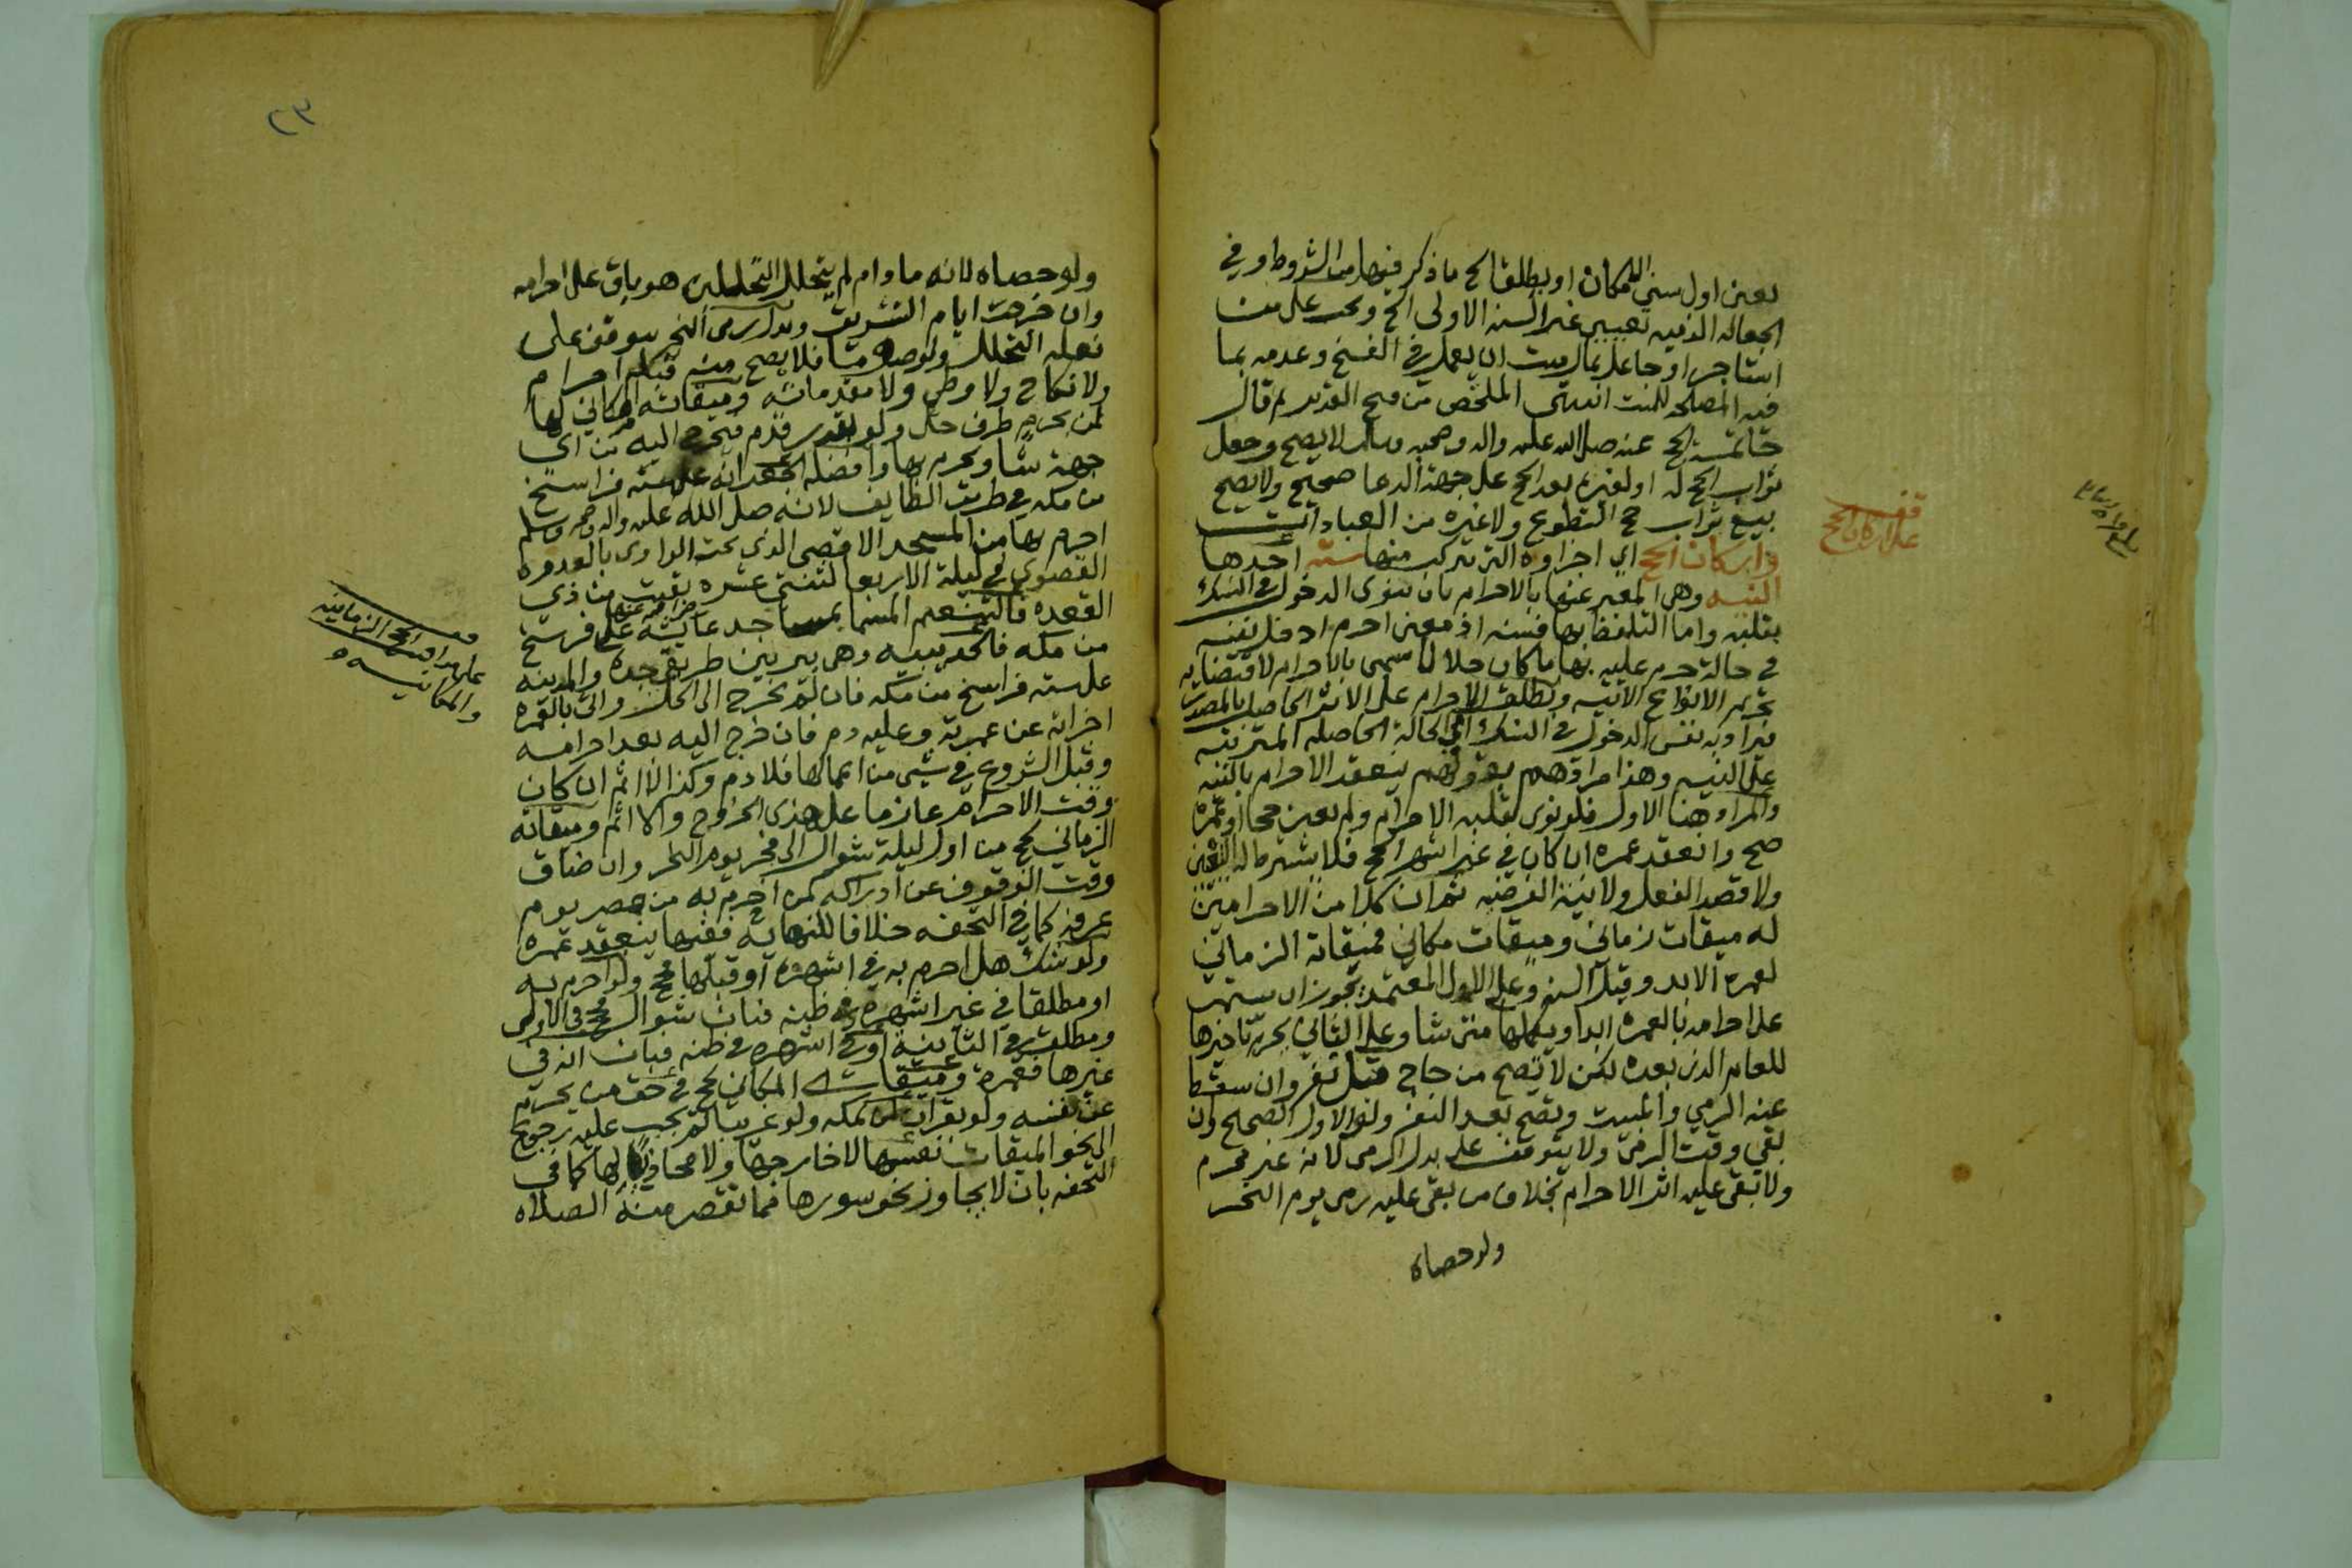 يعين اول سني الامكان او يطلق الحج ما ذكر فيها من الشروط وفي
الجعاله الذميه تعيين غير السنه الاولى الخ ويجب على من
استاجر او جاعل بمال ميت ان يعمل في الفسخ وعدمه بما
فيه المصلحه للميت انتهى الملخص من فتح القدير ثم قال
خاتمة الحج عنه صلى الله عليه واله وصحبه وسلم لا يصح وجعل
ثواب الحج له او لغيره بعد الحج على جهة الدعا صحيح ولا يصح
بيع ثواب حج التطوع ولا غيره من العبادات
واركان الحج اي اجزاوه التي يتركب منها سته احدها
النيه وهي المعبر عنها بالاحرام بان ينوى الدخول في النسك
بقلبه واما التلفظ بها فسنه اذ معنى احرم ادخل نفسه
في حالة حرم عليه بها ما كان حلالا سمى بالاحرام لاقتضايه
تحريم الانواع الاتيه ويطلق الاحرام على الاثر الحاصل بالمصدر
فيراد به نفس الدخول في النسك اي الحالة الحاصله المترتبه
على النيه وهذا مرادهم بقولهم ينعقد الاحرام بالنيه
والمراد هنا الاول فلو نوى بقلبه الاحرام ولم يعين حجا او عمرة
صح وانعقد عمره ان كان في غير اشهر الحج فلا يشترط له التعيين
ولا قصد الفعل ولا نية الفرضيه ثم ان كلا من الاحرامين
له ميقات زماني وميقات مكاني فميقاته الزماني
لعمرة الابد وقيل السنه وعلى الاول المعتمد يجوز ان يستمر
على احرامه بالعمره ابدا ويكملها متى شا وعلى الثاني يحرم تاخيرها
للعام الذي بعده لكن لا تصح من حاج قبل نفر وان سقط
عنه الرمي والمبيت وتصح بعد النفر ولو الاول الصحيح وان
بقي وقت الرمي ولا يتوقف على بدل الرمى لانه غير محرم
ولا تبقى عليه اثر الاحرام بخلاف من بقى عليه رمى يوم النحر
ولو حصاه
قف
على اركان الحج
ولو حصاه لانه ما دام لم يتحلل التحللين هو باق على احرامه
وان خرجت ايام التشريق وبدل رمى النحر يتوقف على
فعله التحلل ولو صوما فلا يصح منه قبله احرام
ولا نكاح ولا وطى ولا مقدماته وميقاته المكاني لها
لمن بحرم طرف حل ولو بقدر قدم فيخرج اليه من اي
جهة شا ويحرم بها وافضله الجعرانه على سته فراسخ
من مكه في طريق الطايف لانه صلى الله عليه واله وصحبه وسلم
احرم بها من المسجد الاقصى الذي تحت الوادى بالعدوه
القصوي في ليلة الاربعا لثنتي عشره بقيت من ذي
القعده فالتنعيم المسما بمساجد عايشه على فرسخ
من مكه فالحديبيه وهي بير بين طريق جده والمدينه
على سته فراسخ من مكه فان لم يخرج الى الحل واتى بالعمره
اجزاته عن عمرته وعليه دم فان خرج اليه بعد احرامه
وقبل الشروع في شي من اعمالها فلا دم وكذا لا اثم ان كان
وقت الاحرام عازما على هذي الخروج والا اثم وميقاته
الزماني لحج من اول ليلة شوال الى فجر يوم النحر وان ضاق
وقت الوقوف عن ادراكه كمن احرم به من مصر يوم
عرفه كما في التحفه خلافا للنهايه ففيها ينعقد عمره
ولو شك هل احرم به في اشهره او قبلها فحج ولو احرم به
او مطلقا في غير اشهره في ظنه فبان شوال فحج في الاولى
ومطلق في الثانيه او في اشهره في ظنه فبان انه في
غيرها فعمرة وميقاته المكاني لحج في حق من يحرم
عن نفسه ولو بقران لمن بمكه ولو غريبا لم يجب عليه رجوع
الى نحو الميقات نفسها لا خارجها ولا محاذيا لها كما في
التحفه بان لا يجاوز نحو سورها فما تقصر منه الصلاه
والمكانيه
٢٣